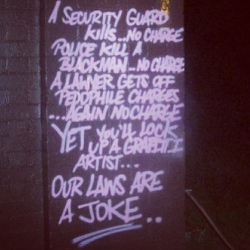 A SECURITY GUARD
KILLS...NO CHARGE
POLICE KILL A
BLACKMAN...NO CHARGE
A LAWYER GETS OFF
PEDOPHILE CHARGES
...AGAIN NO CHARGE
YET YOU'LL LOCK
UP A GRAFFITI
ARTIST...
OUR LAWS ARE
A JOKE..